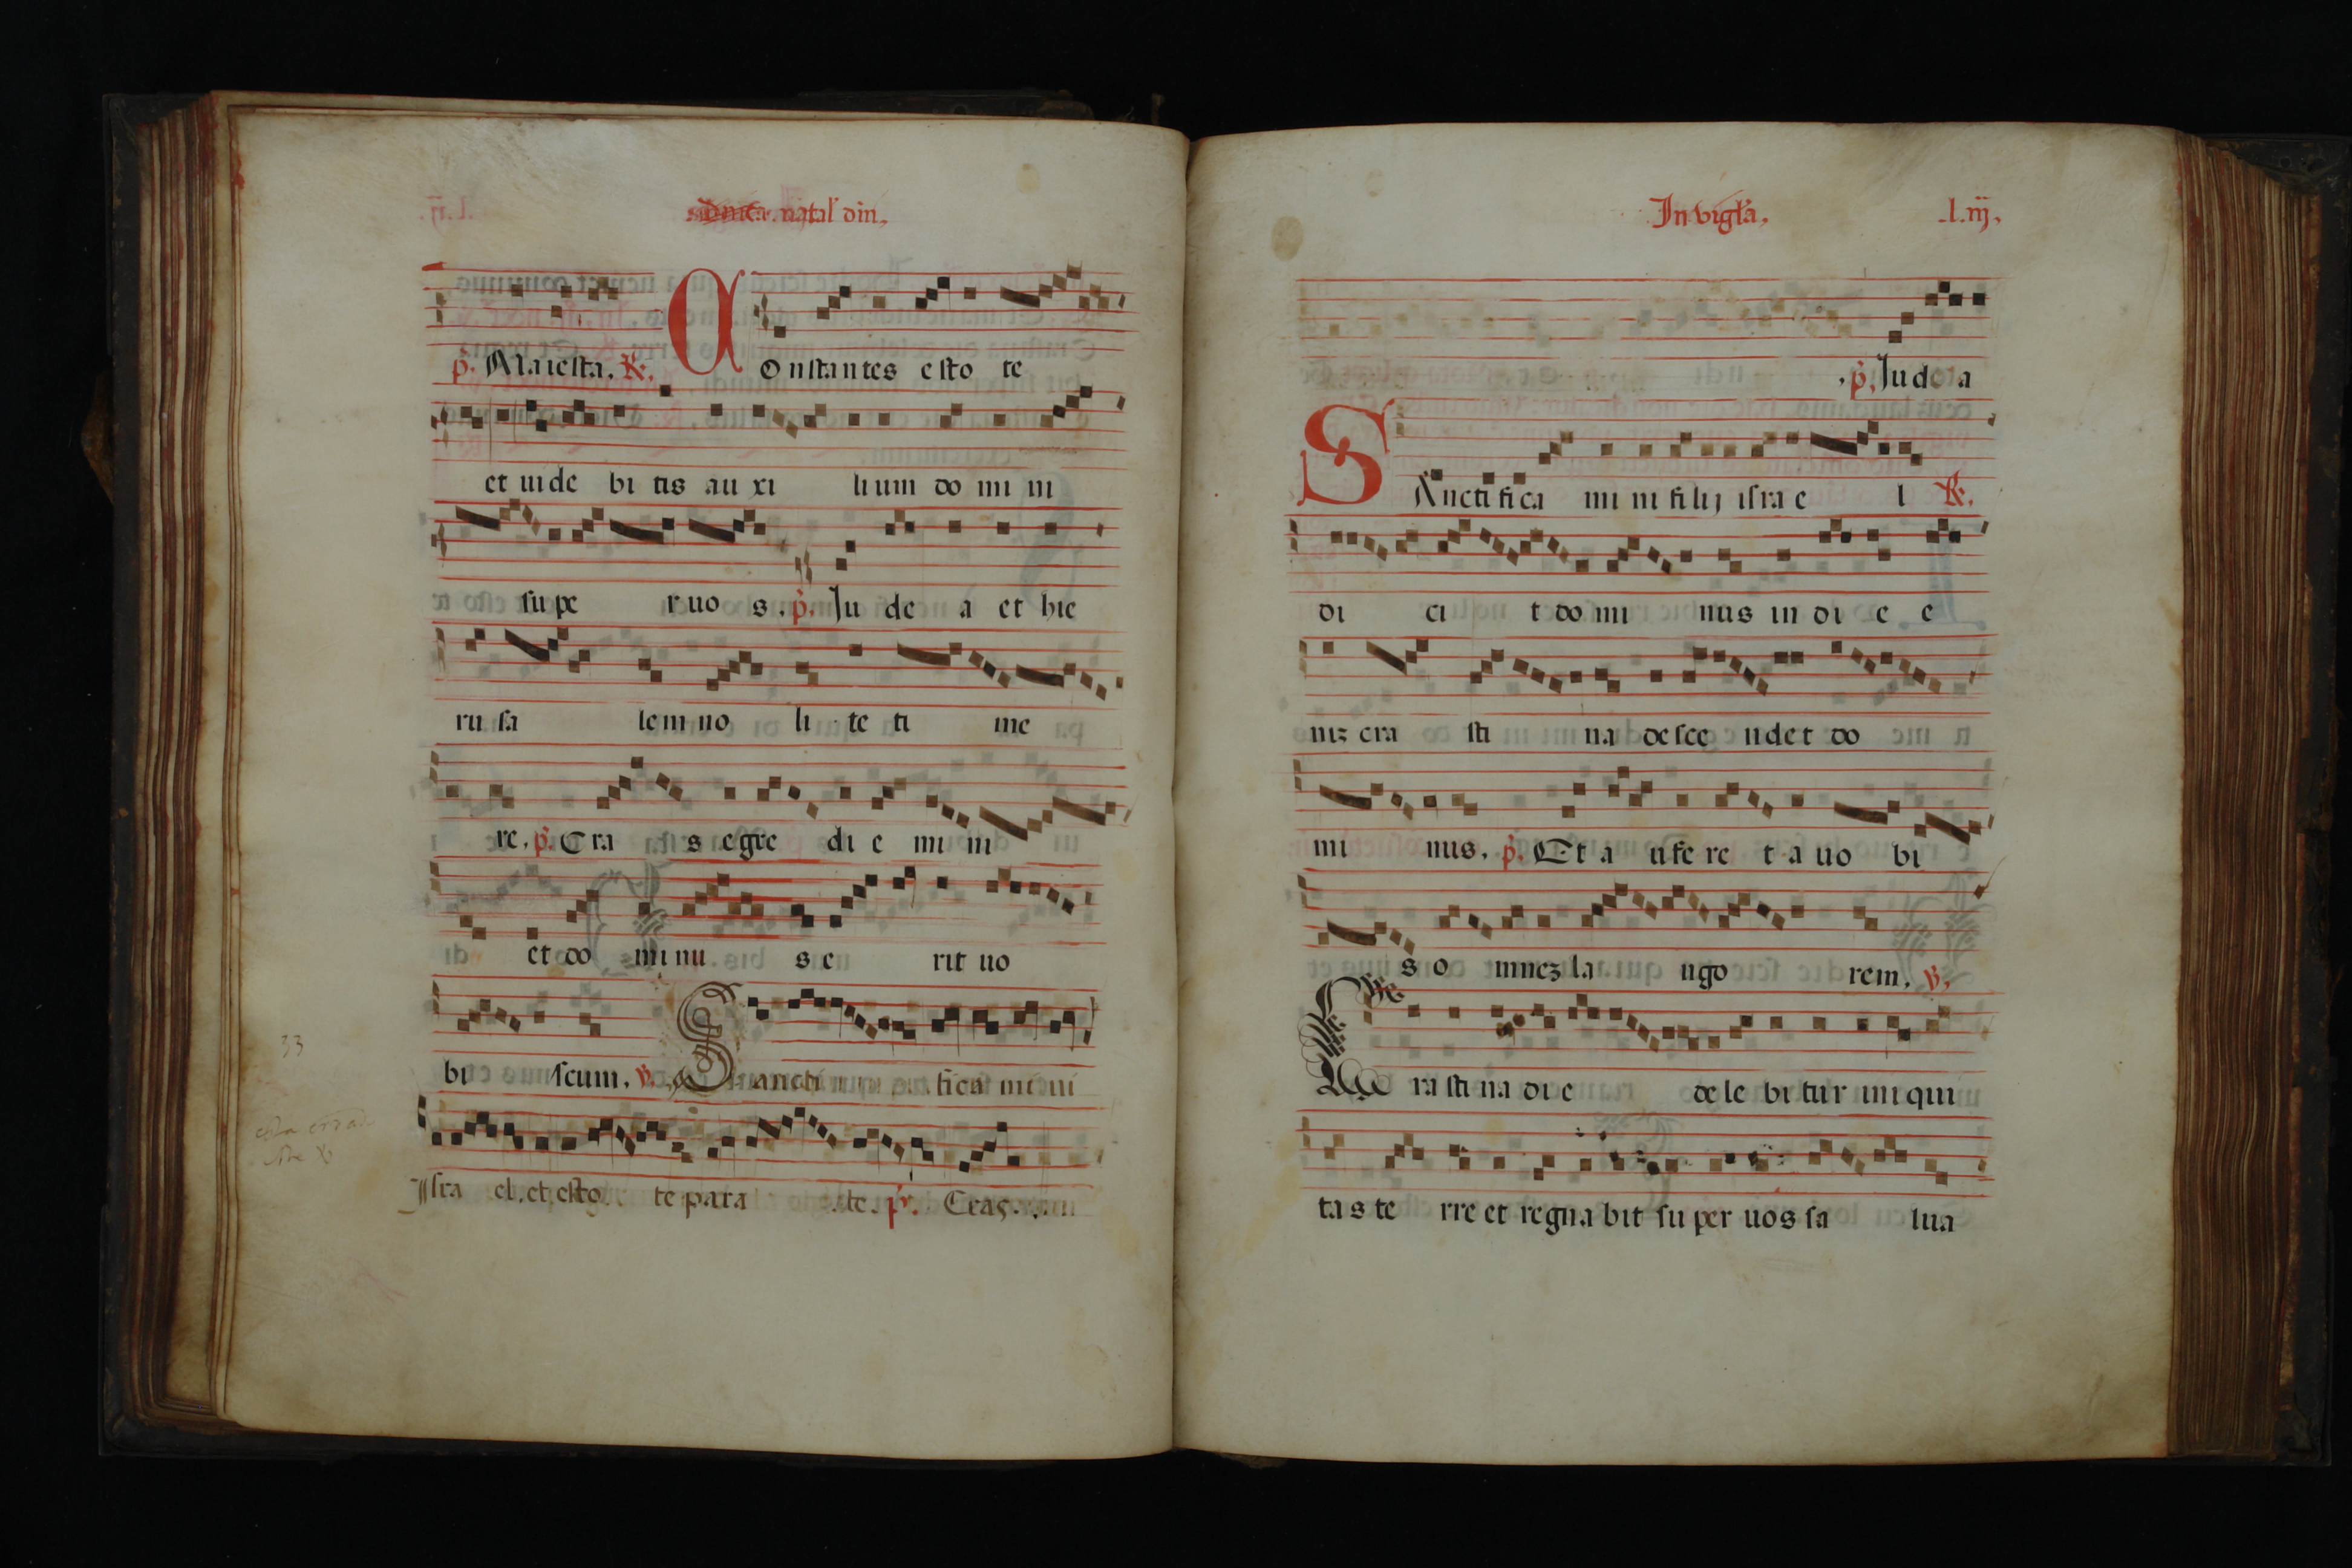 natal' din,
p. Maiesta. R.
Constantes esto te
et uide bi tis au xi lium do mi ni
supe r uo s. p. Ju de a et hie
ru sa lem no li te ti me
re. p. Cra s egre di e mi ni
et do mi nu s e rit uo
bi scum. v. Sancti fica mi ni
Isra el. et esto te para te. p. Cras.
33
In vigl'a, .l.iij.
p. Jude a
SAncti fica mi ni filij isra e l R.
di ci t do mi nus in di e e
niz cra sti na desce ndet do
mi nus. p. Et a ufe re t a uo bi
s o mnez la ngo rem. v.
Cra sti na di e de le bi tur ini qui
ta s te rre et regna bit su per uos sa lua